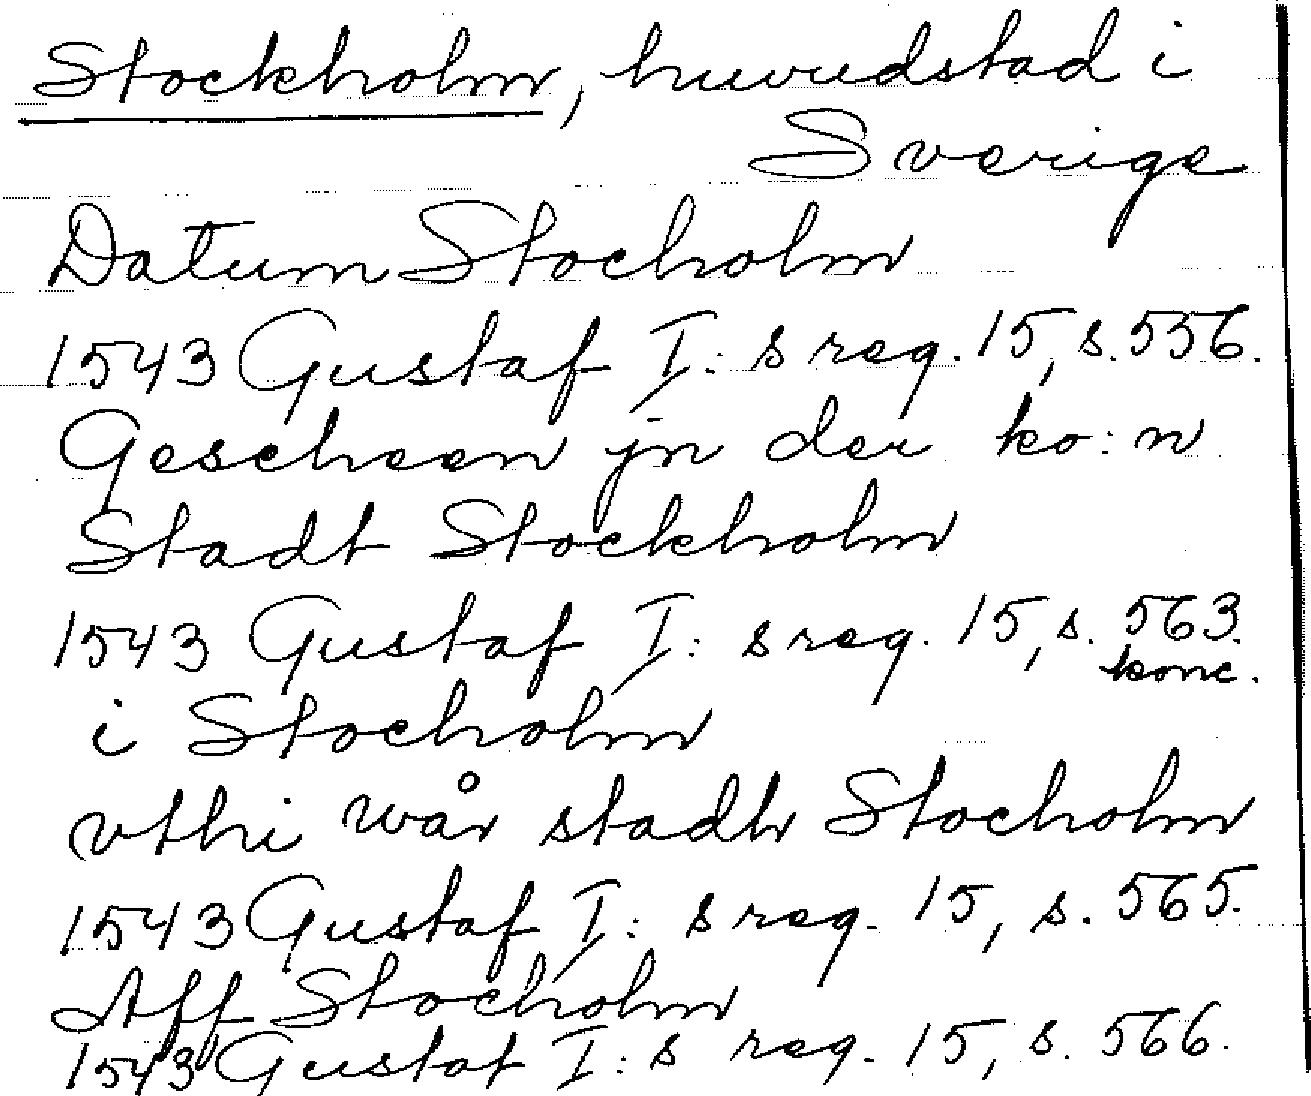 Stockholm, huvudstad i
Sverige
Datum Stocholm
1543 Gustaf I: s reg. 15, s. 556.
Gescheen jn der ko: n
Stadt Stockholm
1543 Gustaf I: s reg. 15, s. 563.
konc.
i Stocholm
vthi wår stadh Stocholm
1543 Gustaf I: s reg. 15, s. 565.
Aff Stocholm
1543 Gustaf I: s reg. 15, s. 566.